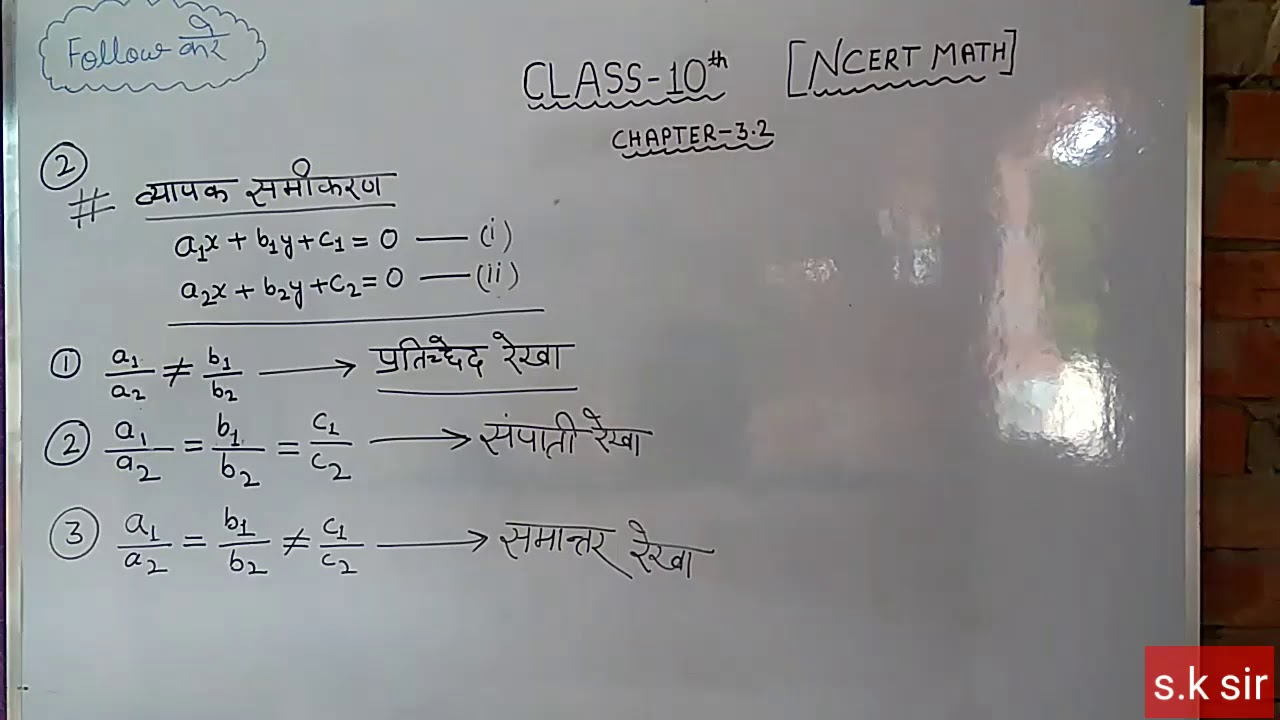 Follow करे
CLASS-10th [NCERT MATH]
CHAPTER-3.2
②
# व्यापक समीकरण
a₁x + b₁y + c₁ = 0 — (i)
a₂x + b₂y + c₂ = 0 — (ii)
① a₁/a₂ ≠ b₁/b₂ → प्रतिच्छेद रेखा
② a₁/a₂ = b₁/b₂ = c₁/c₂ → संपाती रेखा
③ a₁/a₂ = b₁/b₂ ≠ c₁/c₂ → समान्तर रेखा
s.k sir